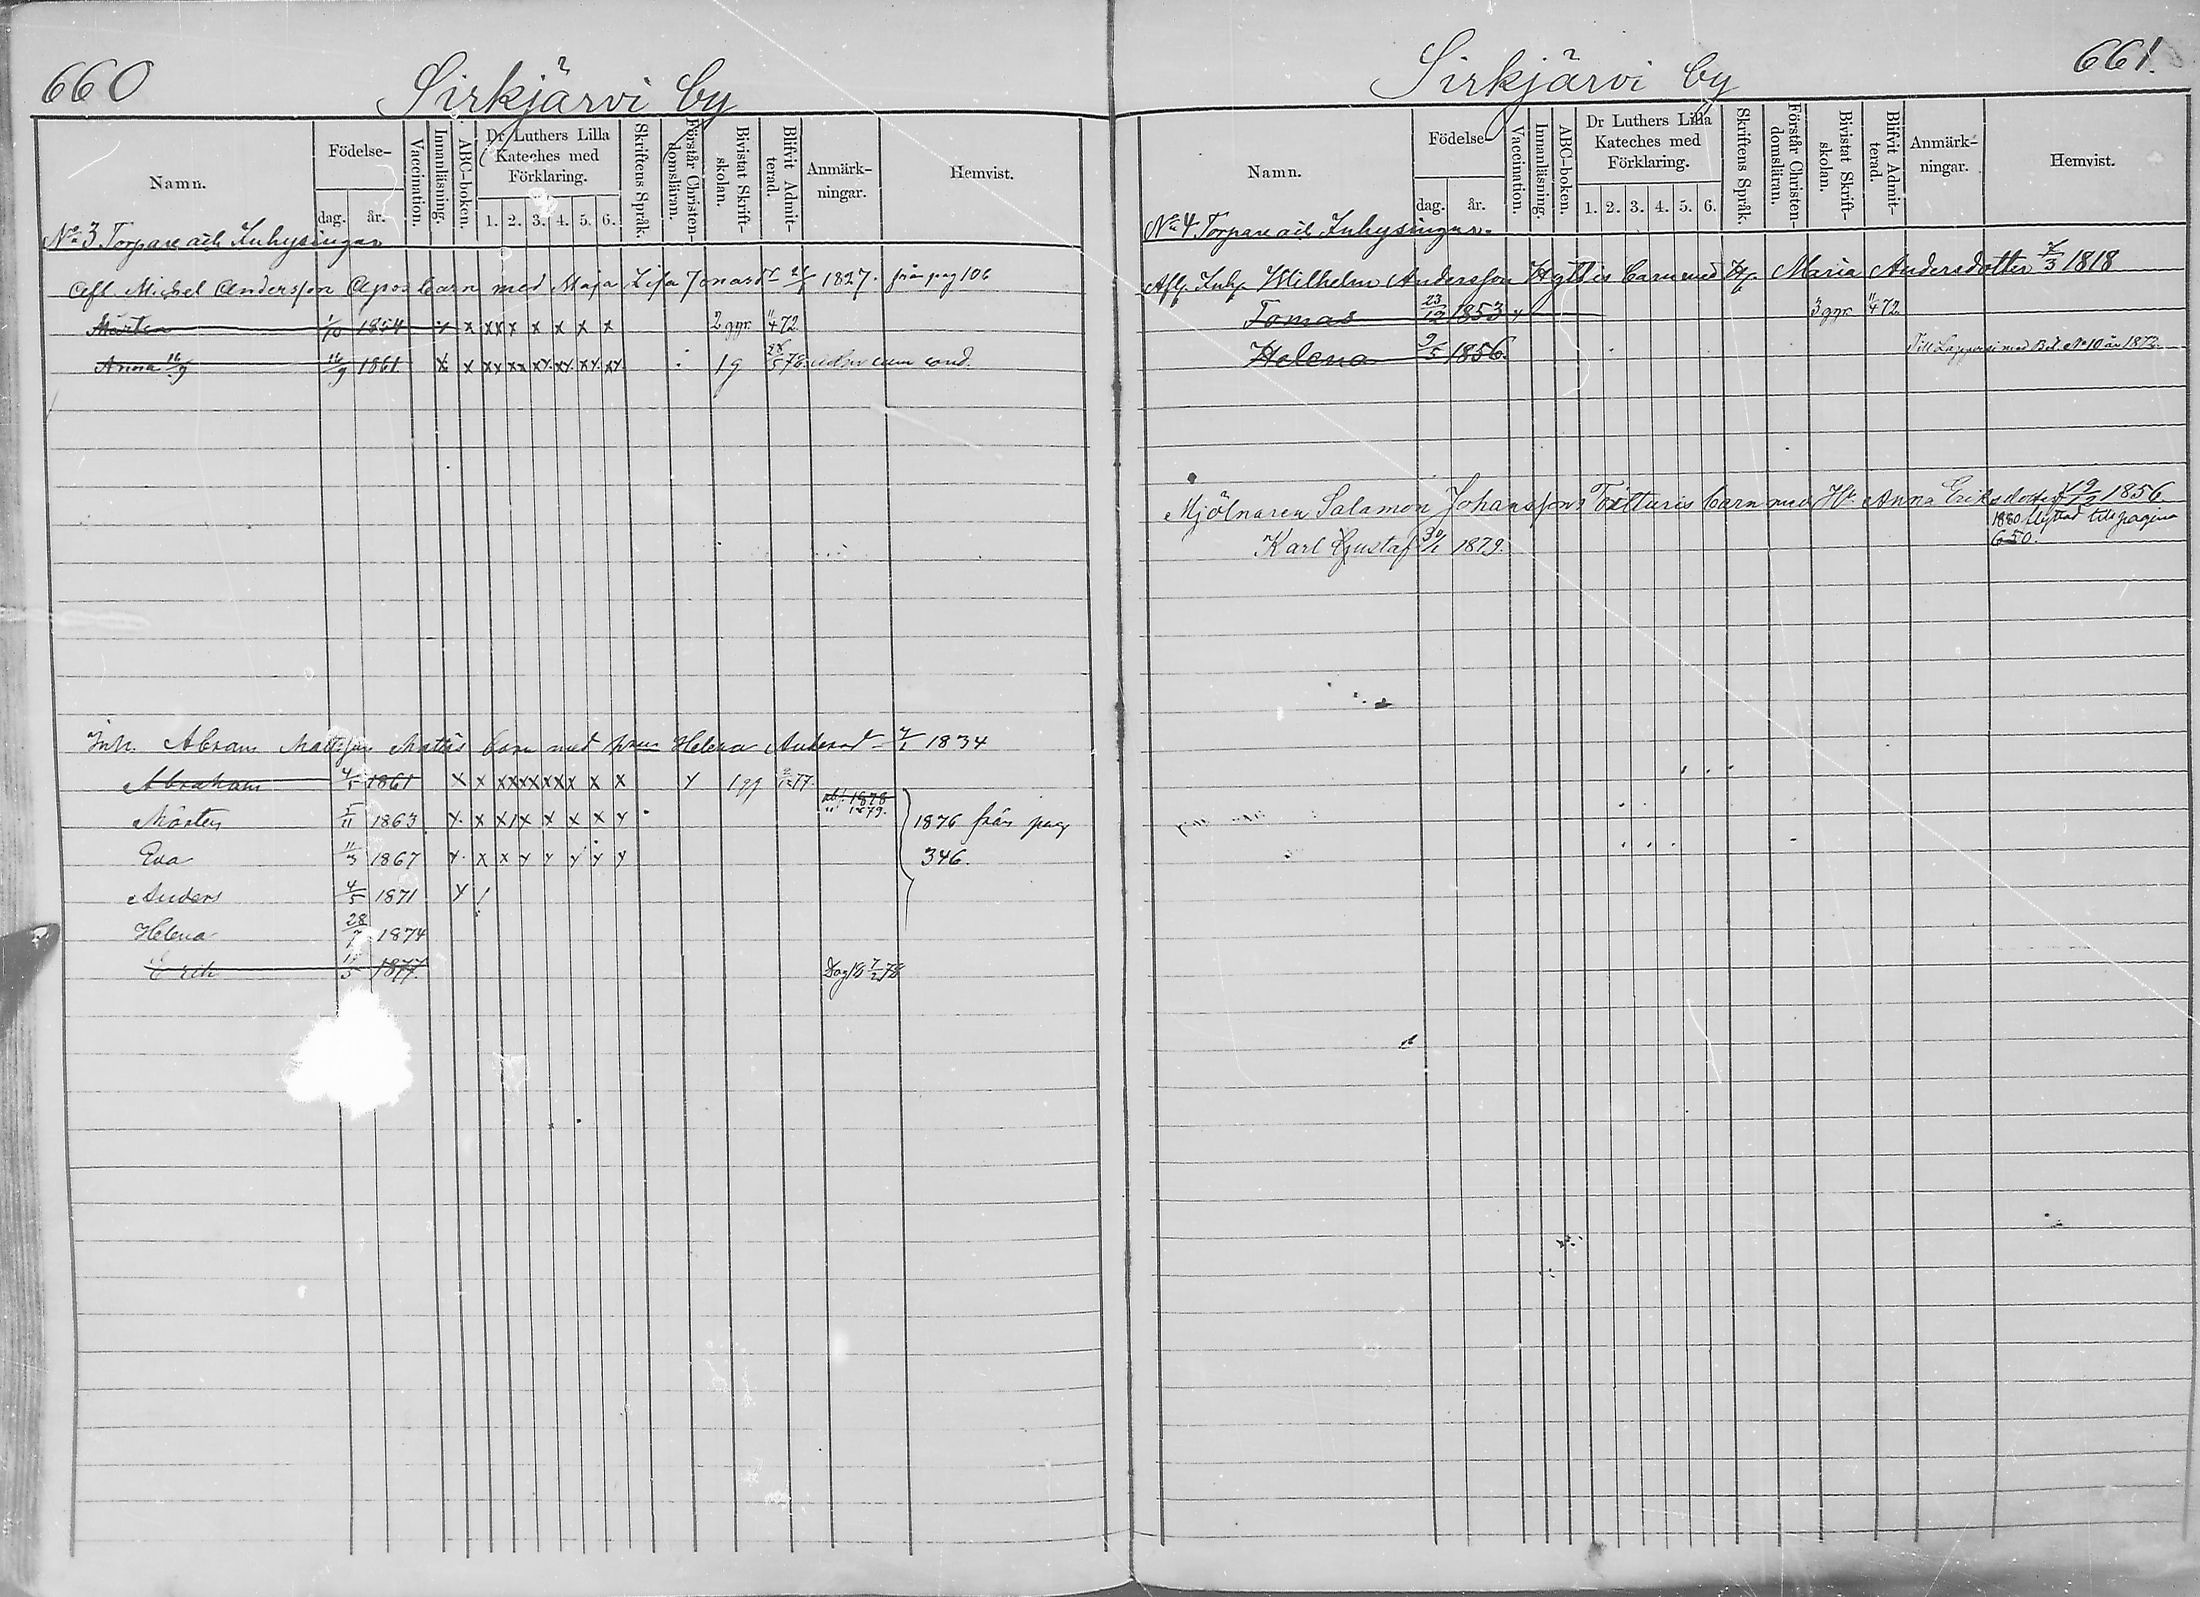 660
Sirkjärvi by
Namn.
Födelse-
dag.
år.
Vaccination.
Innanläsning.
ABC-boken.
Dr Luthers Lilla
Kateches med
Förklaring.
1. 2. 3. 4. 5. 6.
Skriftens Språk.
Förstår Christen-
domsläran.
Bivistat Skrift-
skolan.
Blifvit Admit-
terad.
Anmärk-
ningar.
Hemvist.
No 3 Torpare och Inhysingar
Afl. Michel Andersson barn med Maja Lisa Jonasd 1827. från pag 106
Mårten 1/10 1854 x x x x x x x x 2 ggr. 11/4 72
Anna 16/9 16/9 1861 x x xx xx xx xx xx xx 1 g cum cond.
Inh. Abram Mattsson Mattis barn med hrun Helena Andersd 1834
Abraham 4/5 1861 x x xx xx xx x x x y 1 gg
1878
" 1879.
Mårten 5/11 1863 x x x x x x x y
1876 från pag
Eva 11/3 1867 y x x y y y y y
346.
Anders 4/5 1871 y /
Helena 28/7 1874
Erik 11/5 1877.
661.
Sirkjärvi by
Namn.
Födelse-
dag.
år.
Vaccination.
Innanläsning.
ABC-boken.
Dr Luthers Lilla
Kateches med
Förklaring.
1. 2. 3. 4. 5. 6.
Skriftens Språk.
Förstår Christen-
domsläran.
Bivistat Skrift-
skolan.
Blifvit Admit-
terad.
Anmärk-
ningar.
Hemvist.
No 4. Torpare och Inhysingar.
Afl. Inh. Wilhelm Andersson barn med H. Maria Andersdotter 7/3 1818
Tomas 23/12 1853 3 ggr. 11/4 72.
Helena 9/5 1856. Till med Bet. No 10 år 1872.
Mjölnaren Salamon Johanssons barn med H. Anna Eriksdotter 1856
1880 flyttad till pagina
Karl Gustaf 30/1 1879.
650.